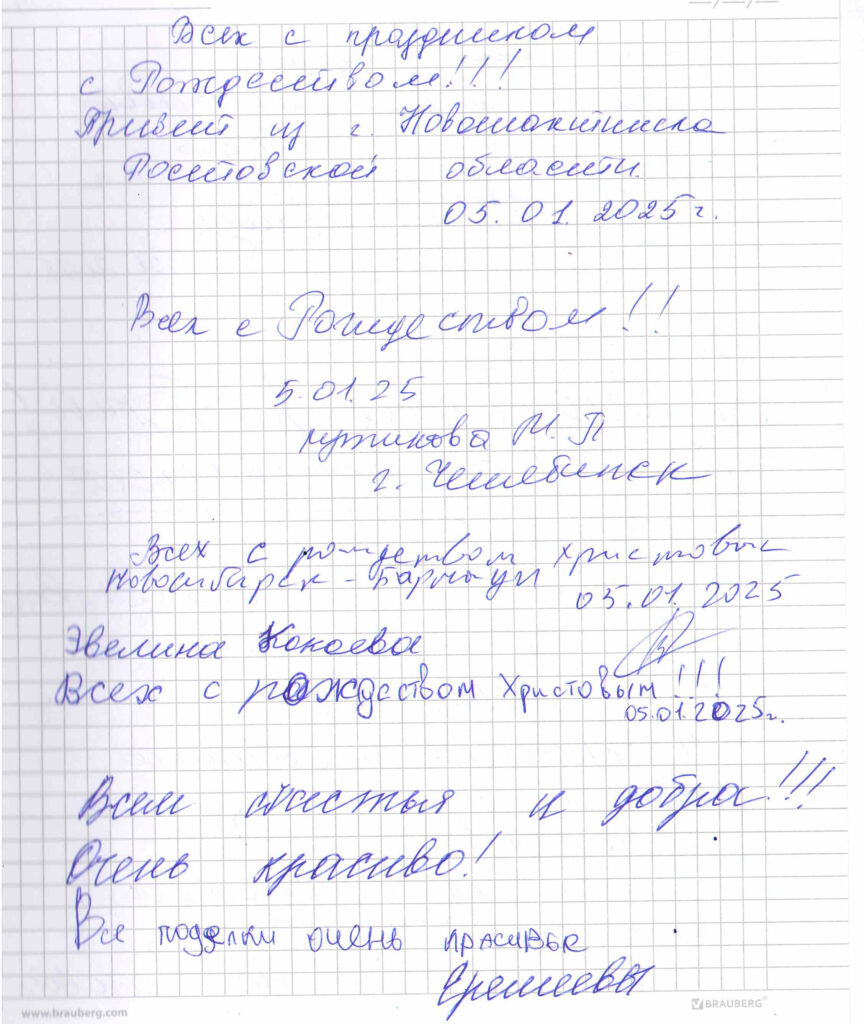 Всех с праздником
с Рождеством!!!
Привет из г. Новошахтинска
Ростовской области.
05.01.2025г.
Всех с Рождеством!!
5.01.25
И. П
г. Челябинск
Всех с рождеством христовым
Новосибирск - Барнаул
05.01.2025
Эвелина Кокоева
Всех с рождеством Христовым!!!
05.01.2025г.
Всем счастья и добра!!!
Очень красиво!
Все поделки очень красивые
Еремеевы
www.brauberg.com
BRAUBERG®